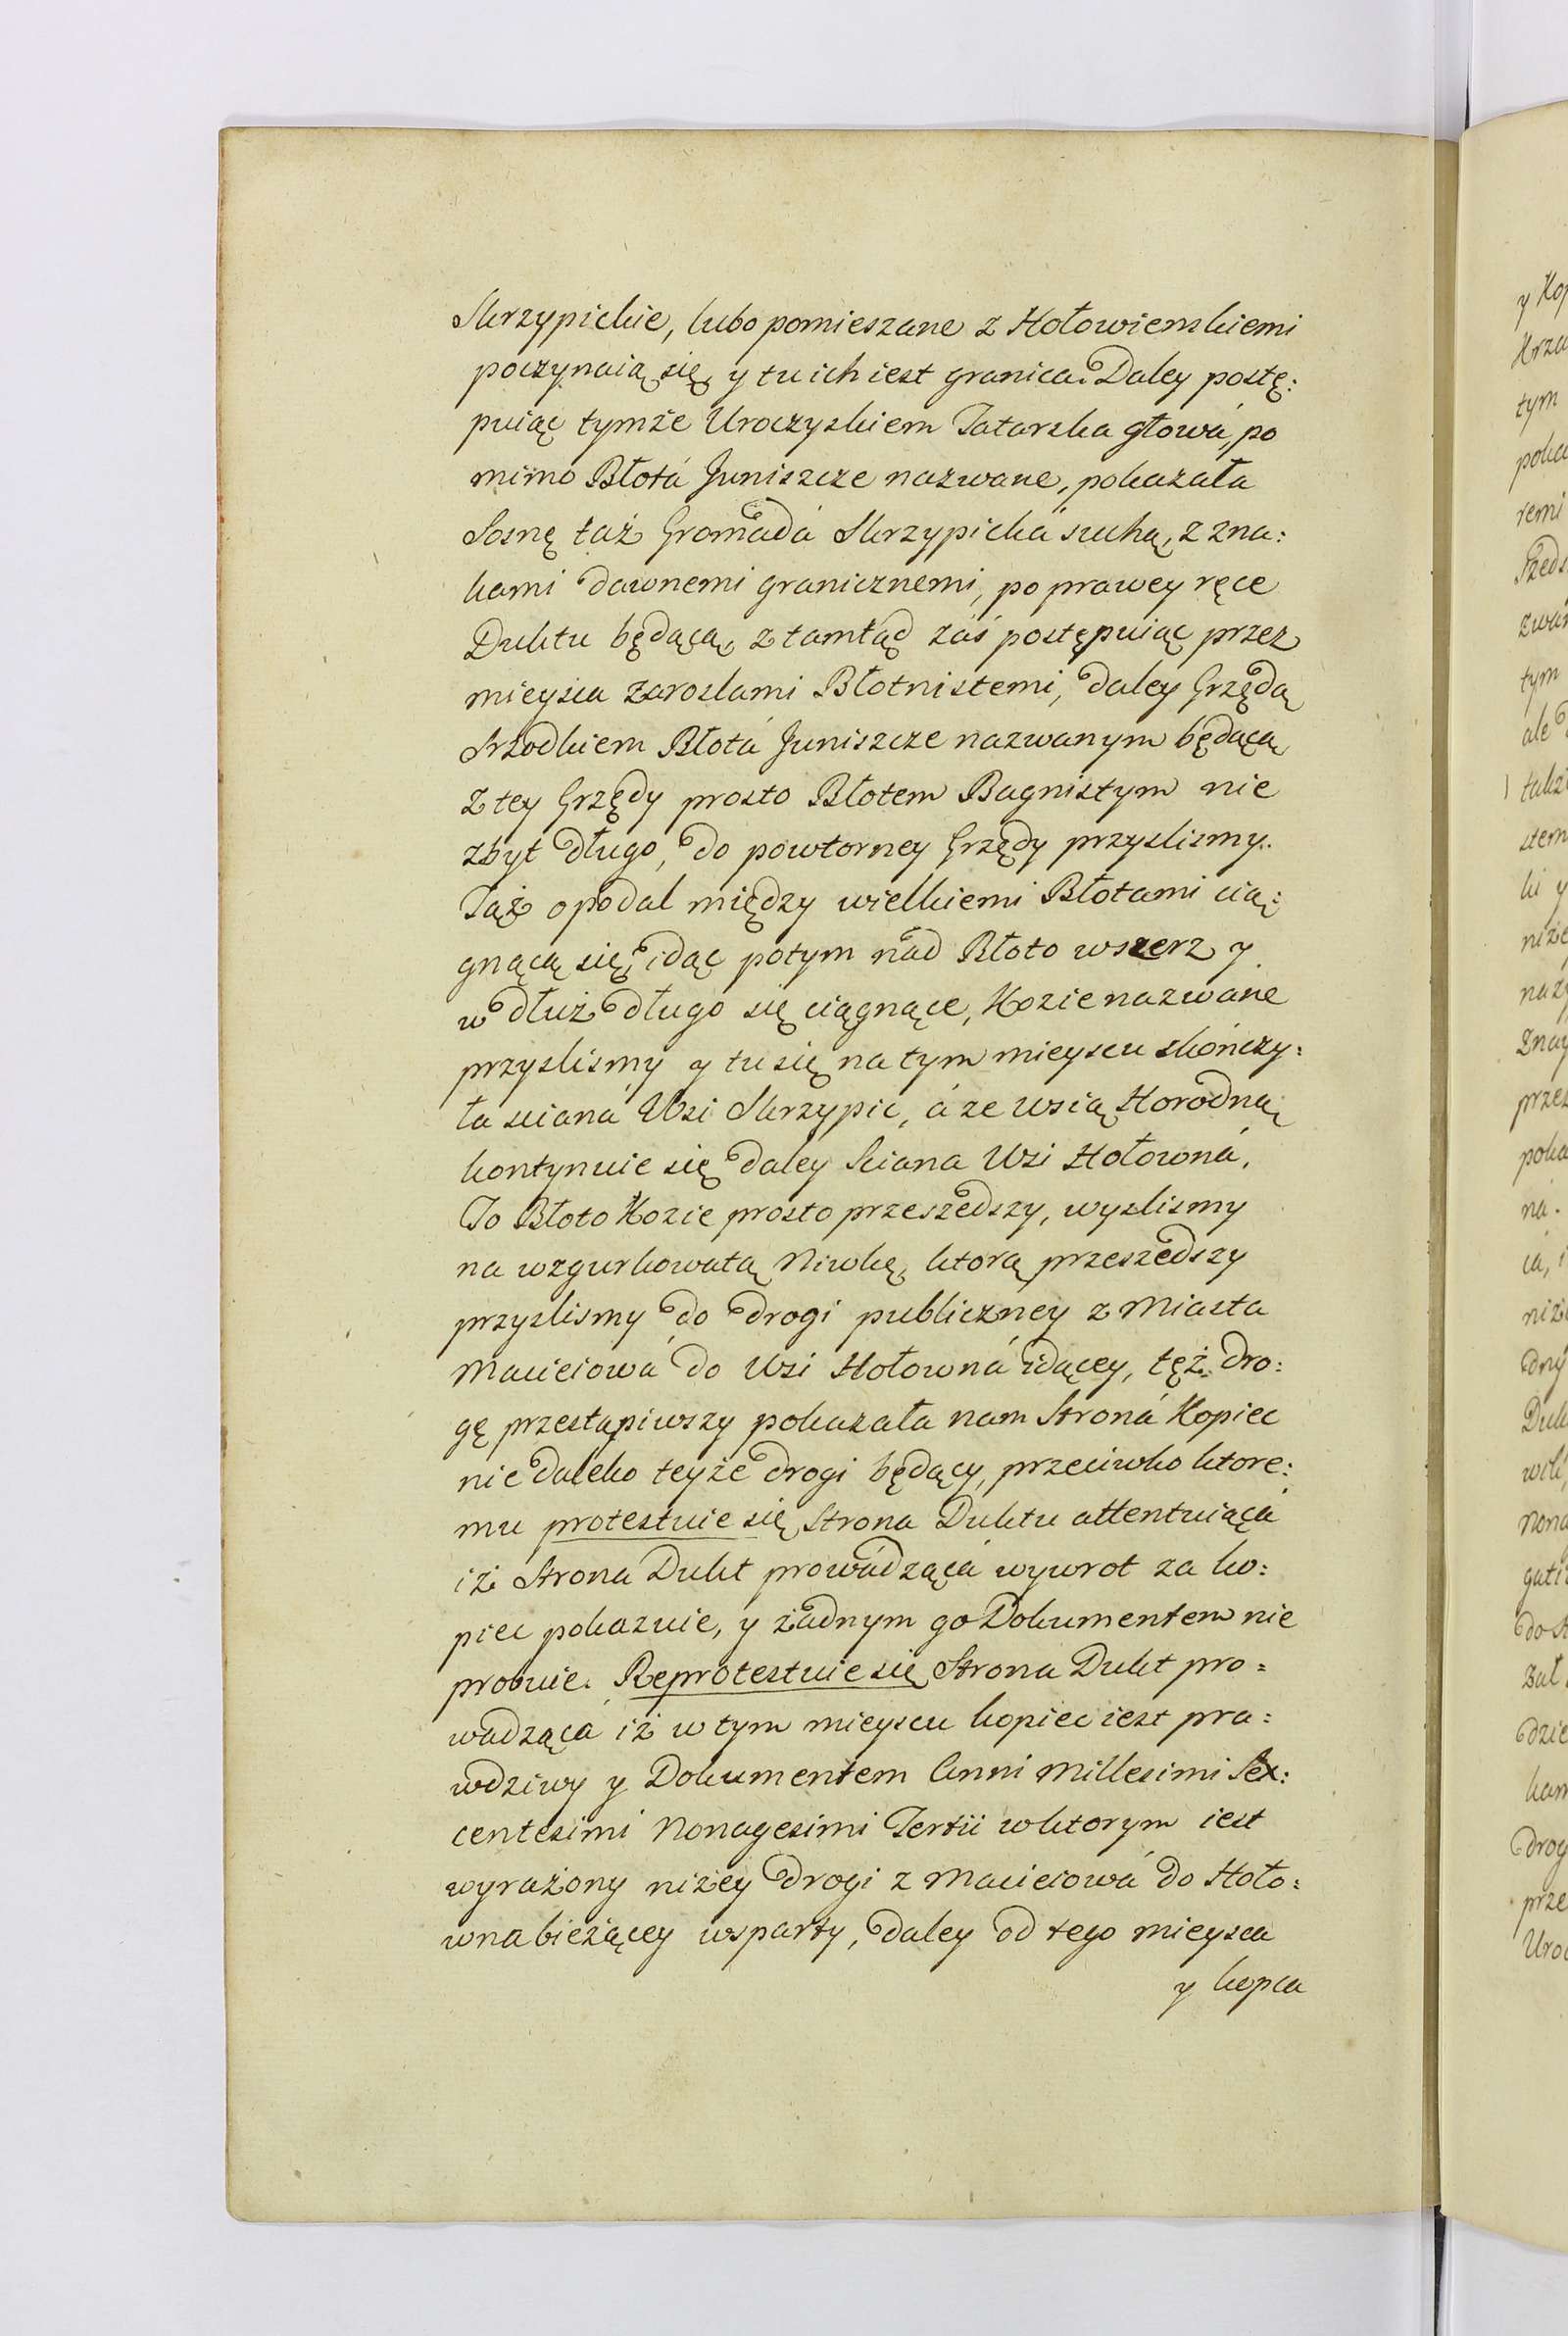 Skrzypickie, lubo pomieszane z Hołowienskiemi
poczynaią się, y tu ich iest granica. Daley postę:
puiąc tymże Uroczyskiem Tatarska głowá, po
mimo Błotá Juniszcze nazwane, pokazała
Sosnę taż Gromadá Skrzypická suchą, z zna:
kami dawnemi granicznemi, po prawey ręce
Duktu będącą, z tamtąd zaś postępuiąc przez
mieysca zaroslami Błotnistemi, daley Grzędą
Srzodkiem Błotá Juniszcze nazwanym będącą
z tey Grzędy prosto Błotem Bagnistym nie
zbyt długo, do powtorney Grzędy przyslismy.
Tąż opodal między wielkiemi Błotami cią:
gnącą się, idąc potym nad Błoto wszerz y
w dłuż długo się ciągnące, Kozie nazwane
przyslismy y tu się na tym mieyscu skończy:
ła scianá Wsi Skrzypic, á ze wsią Horodną
kontynuie się daley Sciana Wsi Hołowná,
To Błoto Kozie prosto przeszedszy, wyslismy
na wzgurkowatą Niwkę, ktorą przeszedszy
przyslismy do drogi publiczney z Miasta
Macieiowá do Wsi Hołowná idącey, tęż dro:
gę przestąpiwszy pokazała nam Stroná Kopiec
nie daleko teyże drogi będący, przeciwko ktore:
mu protestuie się Strona Duktu attentuiącá
iż Strona Dukt prowádzącá wywrot za ko:
piec pokazuie, y żadnym go Dokumentem nie
probuie. Reprotestuie się Strona Dukt pro:
wadzącá iż w tym mieyscu kopiec iest pra:
wdziwy y Dokumentem Anni Millesimi Sex:
centesimi Nonagesimi Tertii w ktorym iest
wyrażony niżey drogi z Macieiowá do Hoło:
wna bieżącey wsparty, daley od tego mieysca
y kopca